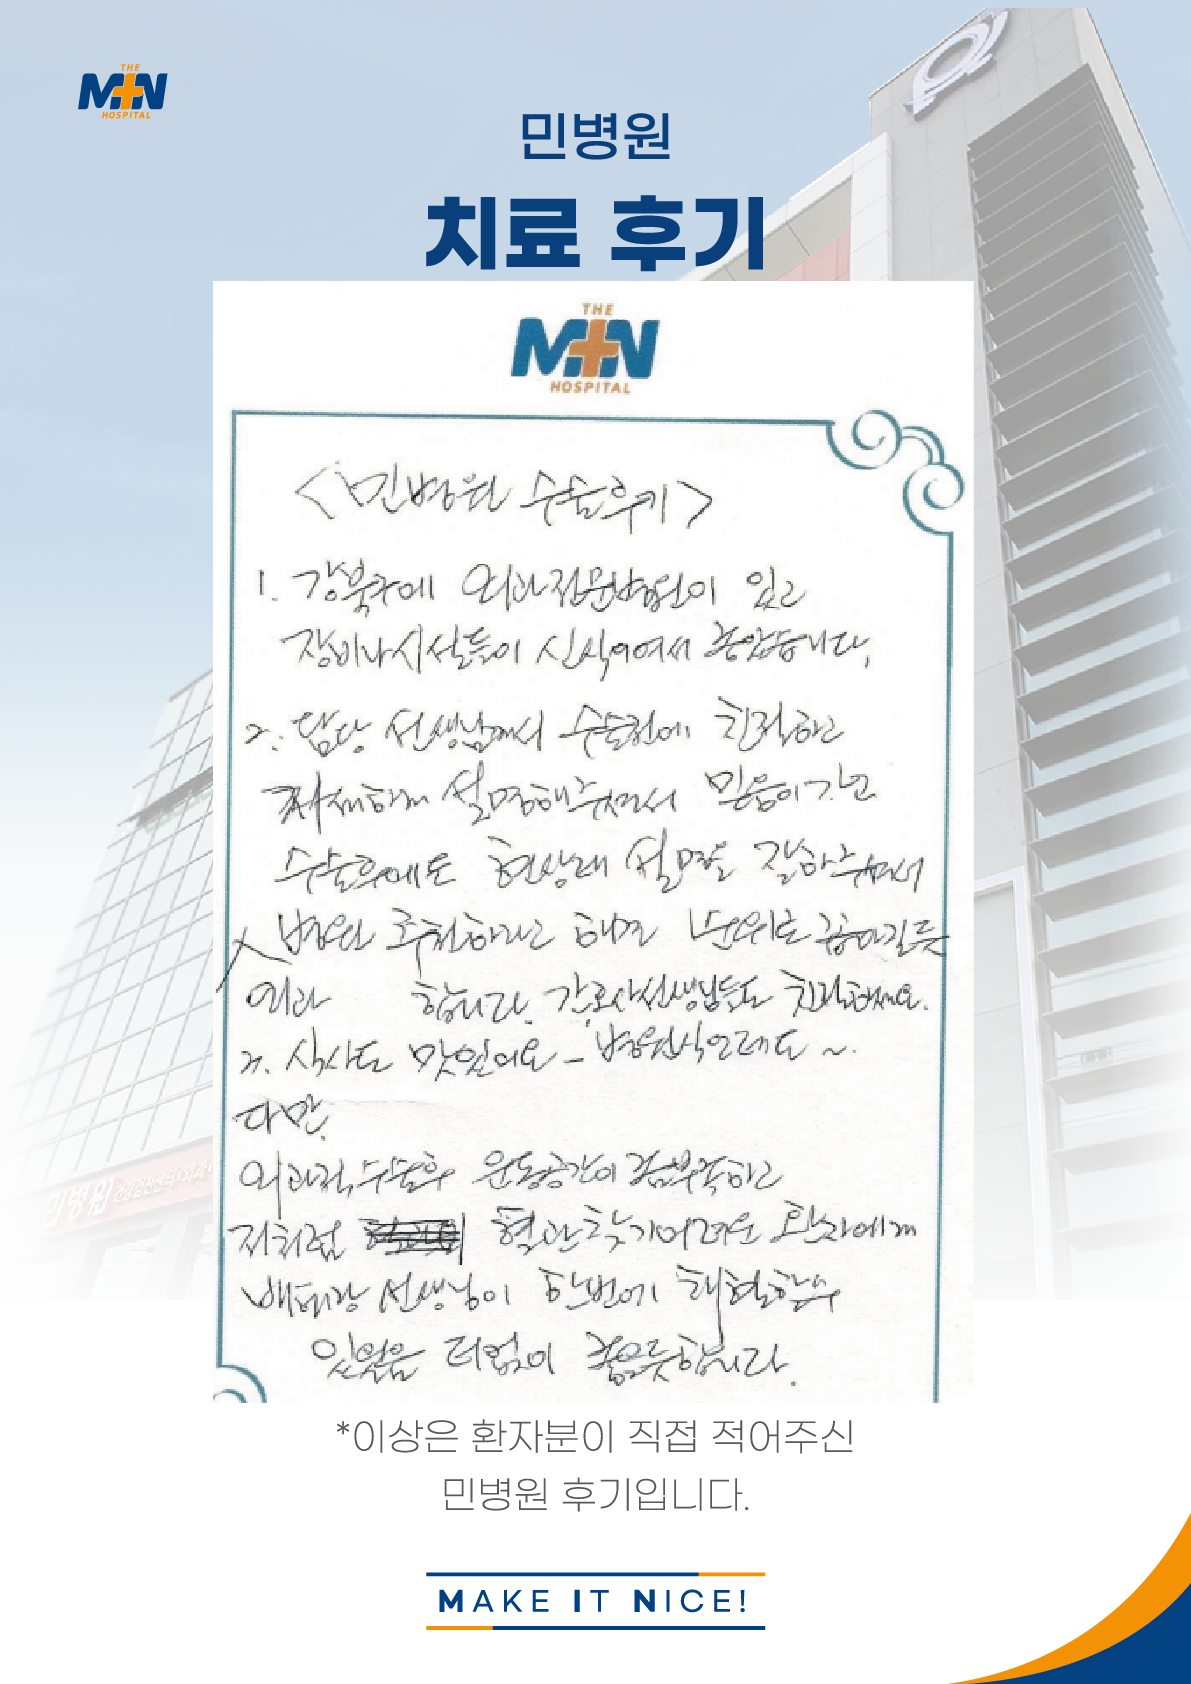 THE
MIN
HOSPITAL
민병원
치료 후기
THE
MIN
HOSPITAL
<민병원 수술후기>
1. 강북구에 외과전문병원이 있고
장비나 시설들이 신식이여서 좋았습니다.
2. 담당 선생님께서 수술전에 친절하고
자세하게 설명해주셔서 믿음이가고
수술후에도 현상태 설명을 잘해주셔서
병원 추천하라고 하면 1순위로 꼽아질듯
외과 합니다. 간호사선생님들도 친절하세요.
3. 식사도 맛있어요 - 병원식인데도 ~.
다만,
외과적 수술후 운동공간이 좀 부족하고
저처럼 혈관찾기어려운 환자에게
베테랑 선생님이 한번에 채혈할수
있었음 더없이 좋을듯합니다.
민병원
*이상은 환자분이 직접 적어주신
민병원 후기입니다.
MAKE IT NICE!